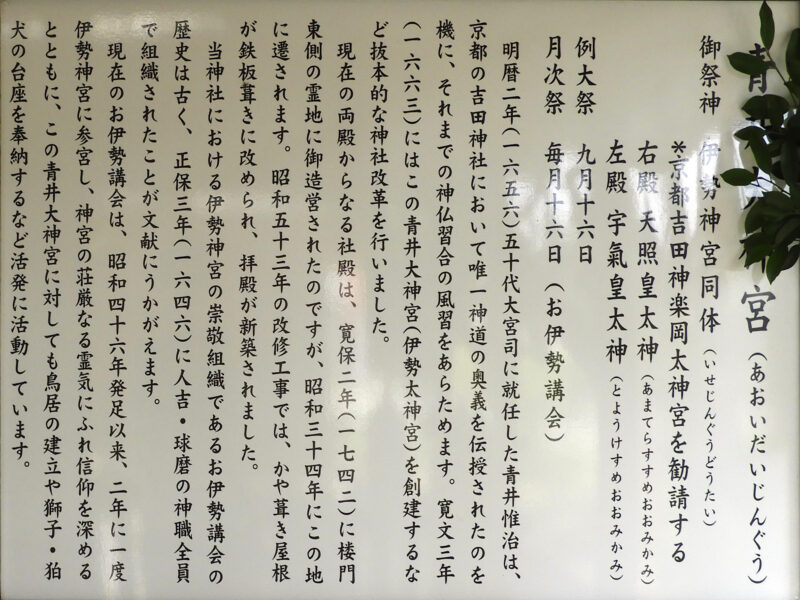 青井 宮（あおいだいじんぐう）
御祭神 伊勢神宮同体（いせじんぐうどうたい）
＊京都吉田神楽岡太神宮を勧請する
右殿 天照皇太神（あまてらすすめおおみかみ）
左殿 宇氣皇太神（とようけすめおおみかみ）
例大祭 九月十六日
月次祭 毎月十六日（お伊勢講会）
明暦二年（一六五六）五十代大宮司に就任した青井惟治は、
京都の吉田神社において唯一神道の奥義を伝授されたのを
機に、それまでの神仏習合の風習をあらためます。寛文三年
（一六六三）にはこの青井大神宮（伊勢太神宮）を創建するな
ど抜本的な神社改革を行いました。
現在の両殿からなる社殿は、寛保二年（一七四二）に楼門
東側の霊地に御造営されたのですが、昭和三十四年にこの地
に遷されます。昭和五十三年の改修工事では、かや葺き屋根
が鉄板葺きに改められ、拝殿が新築されました。
当神社における伊勢神宮の崇敬組織であるお伊勢講会の
歴史は古く、正保三年（一六四六）に人吉・球磨の神職全員
で組織されたことが文献にうかがえます。
現在のお伊勢講会は、昭和四十六年発足以来、二年に一度
伊勢神宮に参宮し、神宮の荘厳なる霊気にふれ信仰を深める
とともに、この青井大神宮に対しても鳥居の建立や獅子・狛
犬の台座を奉納するなど活発に活動しています。